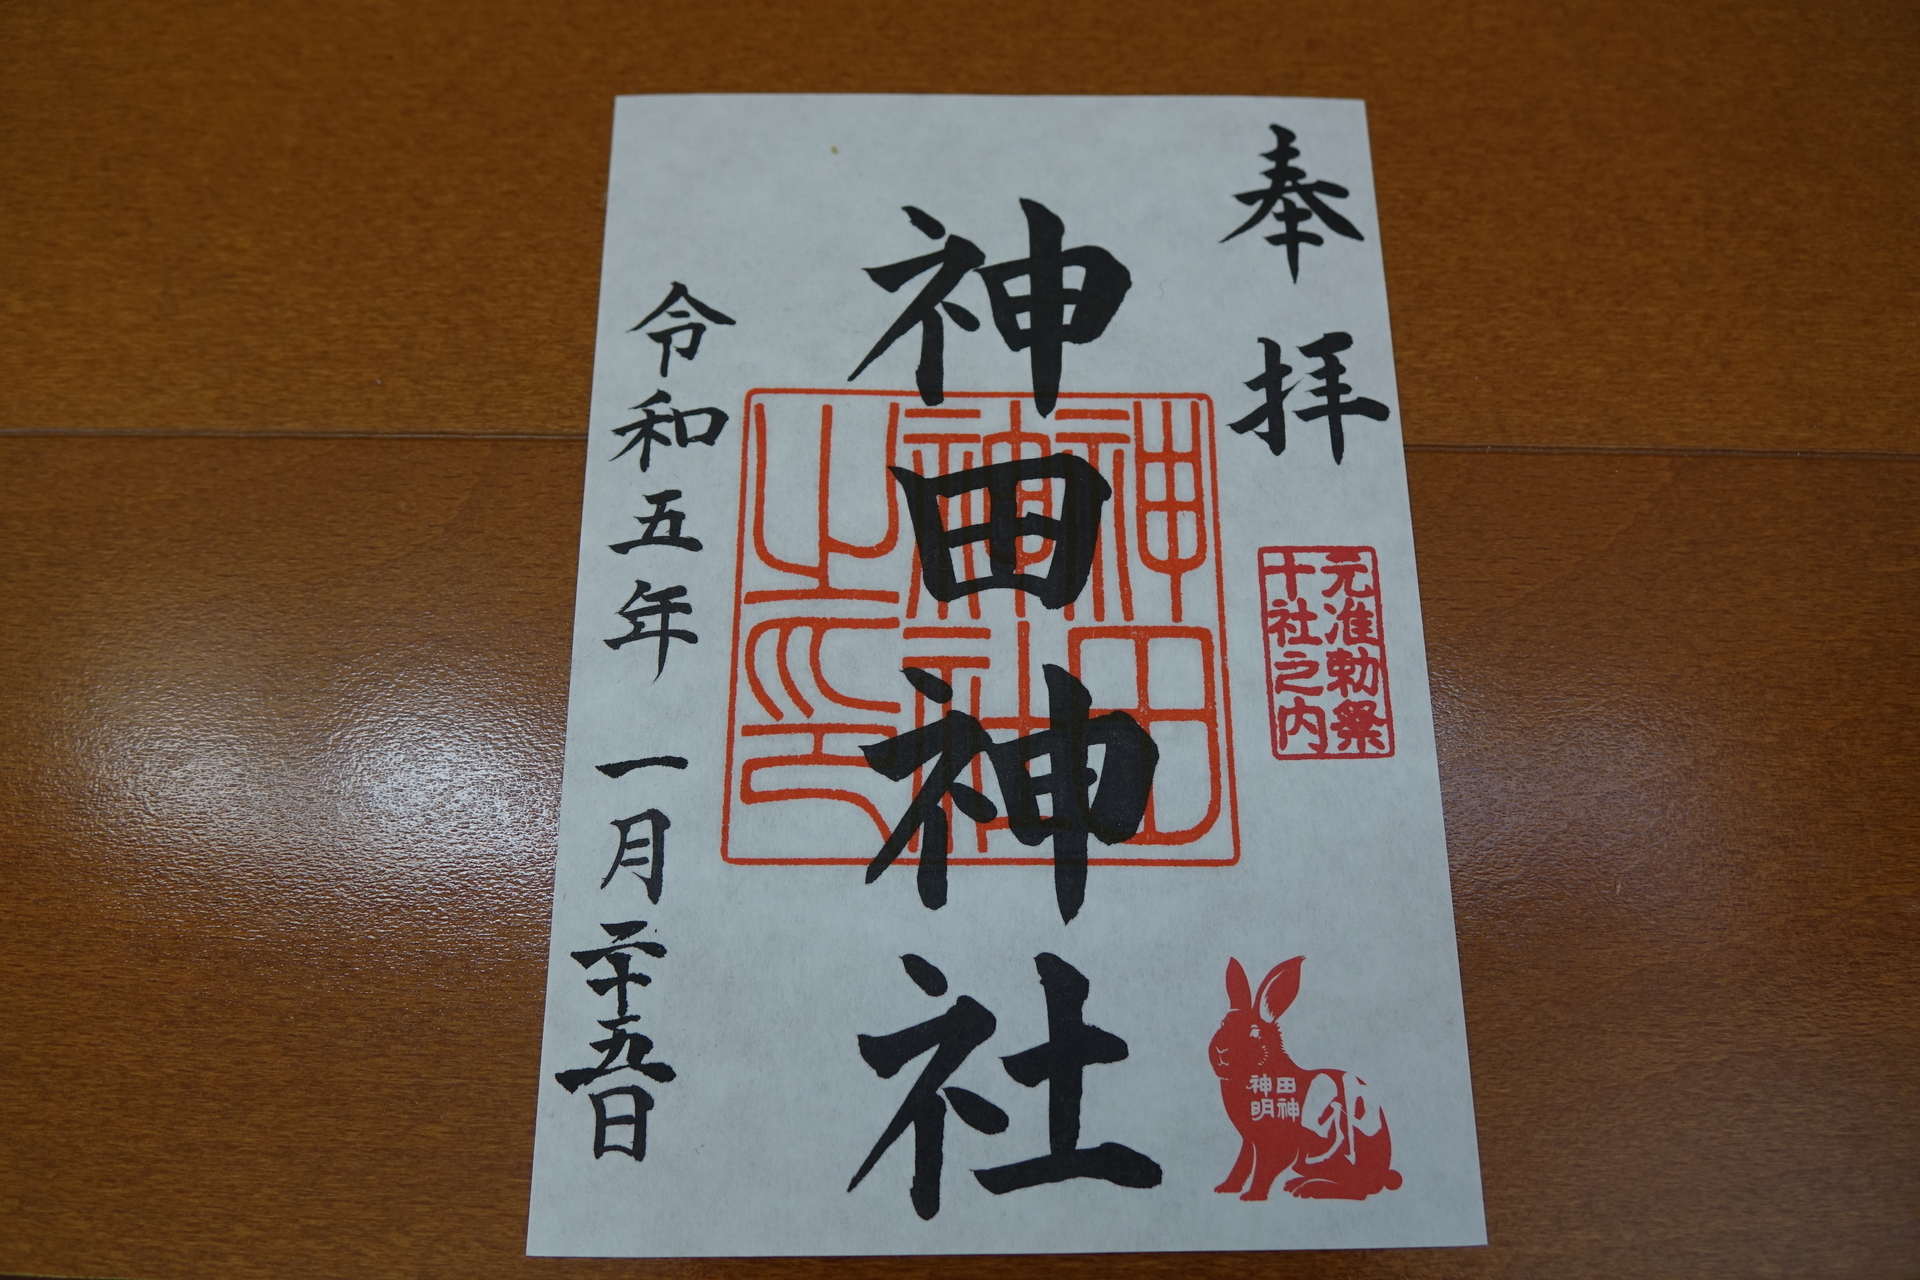 奉拝
元准勅祭
十社之内
神田神社
神田
神社
之印
令和五年一月二十五日
田神
神明
卯